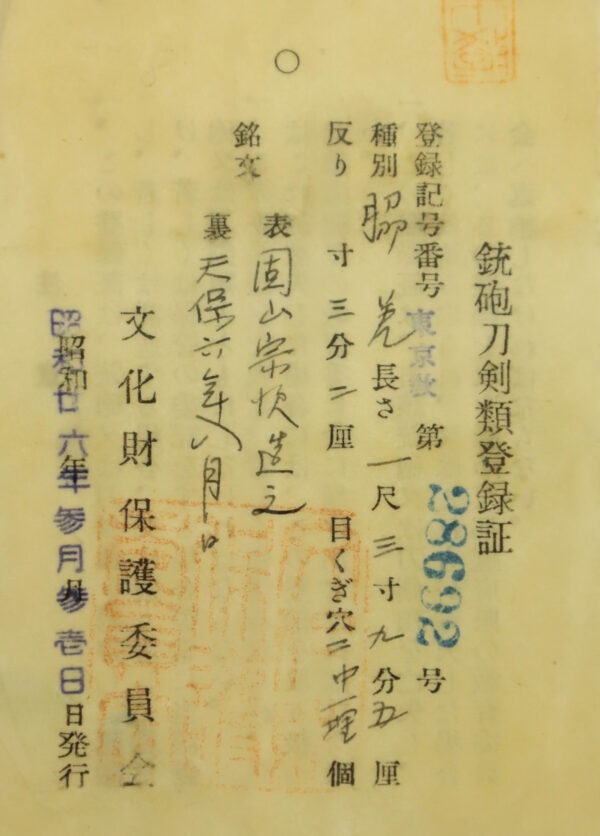 銃砲刀剣類登録証
登録記号番号 東京教 第 28692 号
種別 脇差 長さ 一尺三寸九分五厘
反り 寸三分二厘 目くぎ穴 二中一埋 個
銘文
表 固山宗次造之
裏 天保六年八月日
文化財保護委員会
昭和 年 月 日発行
昭和廿六年参月参壱日